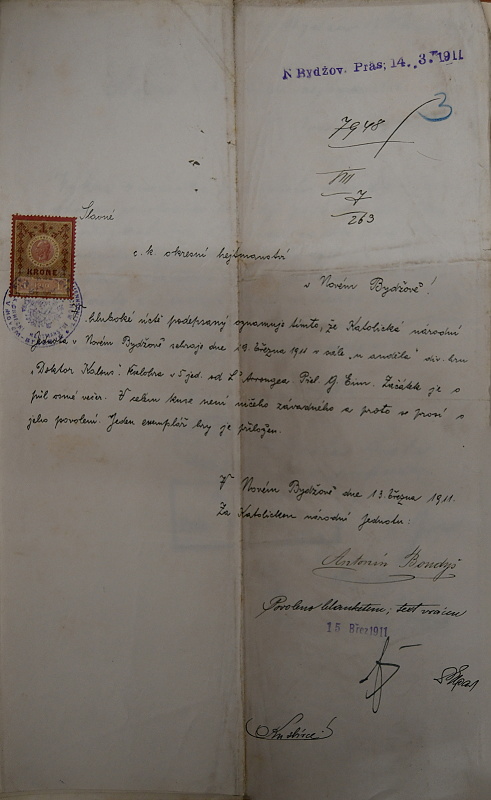 N Bydžov. Präs; 14. 3. 1911
3
7948
III
7
263
Slavné
1
KRONE
c. k. okresní hejtmanství
v Novém Bydžově!
V hluboké úctě podepsaný oznamuje tímto, že Katolická národní
Jednota v Novém Bydžově sehraje dne 19. března 1911 v sále „u anděla" div. hru
„Doktor Kalous". Veselohra v 5 jed. od L' Arronge. Přel. G. Eim. Začátek je o
půl osmé večer. V celém kuse není ničeho závadného a proto se prosí o
jeho povolení. Jeden exemplář hry je přiložen.
V Novém Bydžově dne 13. března 1911.
Za Katolickou národní Jednotu:
Antonín Bondyš
Povoleno blanketem; text vrácen
15 Břez 1911